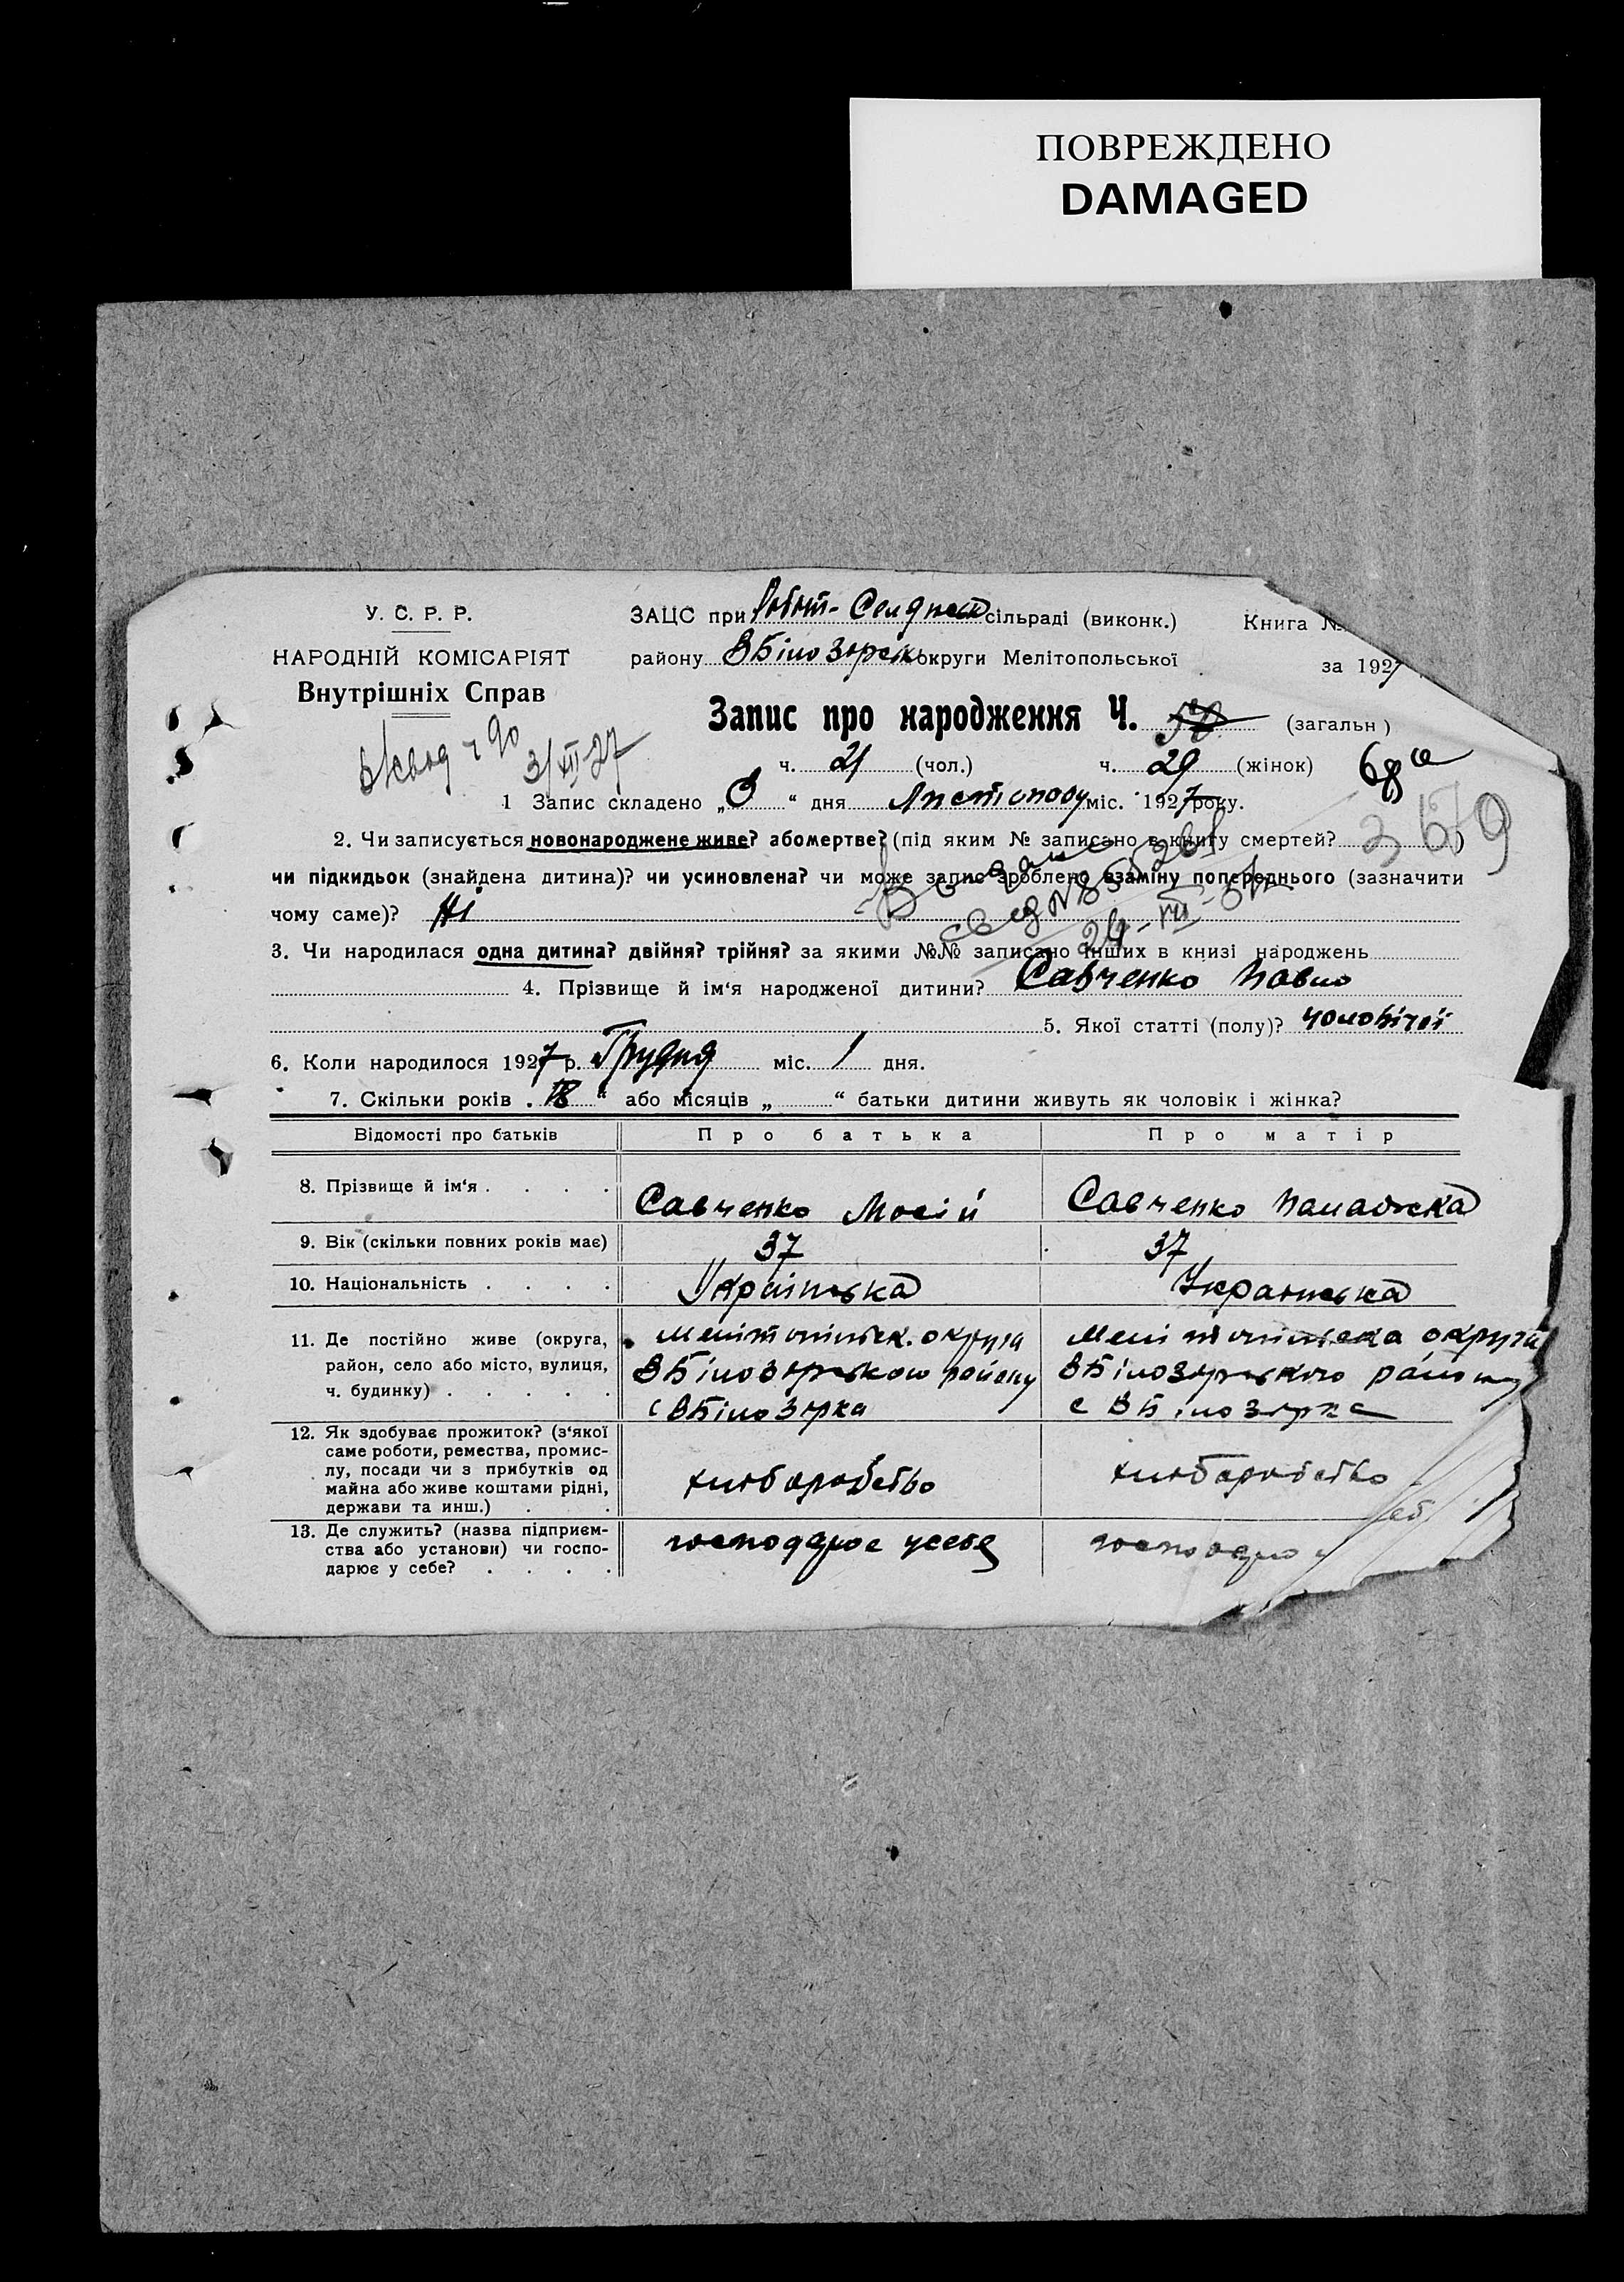 ПОВРЕЖДЕНО
DAMAGED
У. С. Р. Р.
НАРОДНІЙ КОМІСАРІЯТ
Внутрішніх Справ
ЗАЦС при сільраді (виконк.)
Книга №
району ВБілозірськ округи Мелітопольської
за 1927
Запис про народження Ч. (загальн)
3/XII-27
ч. 21 (чол.) ч. 29 (жінок)
1 Запис складено „ “ дня Листопаду міс. 1927 року.
2. Чи записується новонароджене живе? або мертве? (під яким № записано в книгу смертей? )
чи підкидьок (знайдена дитина)? чи усиновлена? чи може запис зроблено взаміну попереднього (зазначити
чому саме)? Ні
3. Чи народилася одна дитина? двійня? трійня? за якими №№ записано інших в книзі народжень
4. Прізвище й ім‘я народженої дитини? Савченко Павло
5. Якої статті (полу)? чоловічої
6. Коли народилося 1927 р. Грудня міс. 1 дня.
7. Скільки років „18“ або місяців „ “ батьки дитини живуть як чоловік і жінка?
Відомості про батьків Про батька Про матір
8. Прізвище й ім‘я . . . . Савченко Мосій Савченко Палажка
9. Вік (скільки повних років має) 37 37
10. Національність . . . . Українська Українська
11. Де постійно живе (округа, Мелітопільск. округа Мелітопільска округа
район, село або місто, вулиця, ВБілозірського району ВБілозірського району
ч. будинку) . . . . . с ВБілозірка с ВБілозірка
12. Як здобуває прожиток? (з‘якої
саме роботи, ремества, промис-
лу, посади чи з прибутків од хліборобство хліборобство
майна або живе коштами рідні,
держави та инш.) . .
13. Де служить? (назва підприєм- господарює у себе
ства або установи) чи госпо-
дарює у себе? . . . .